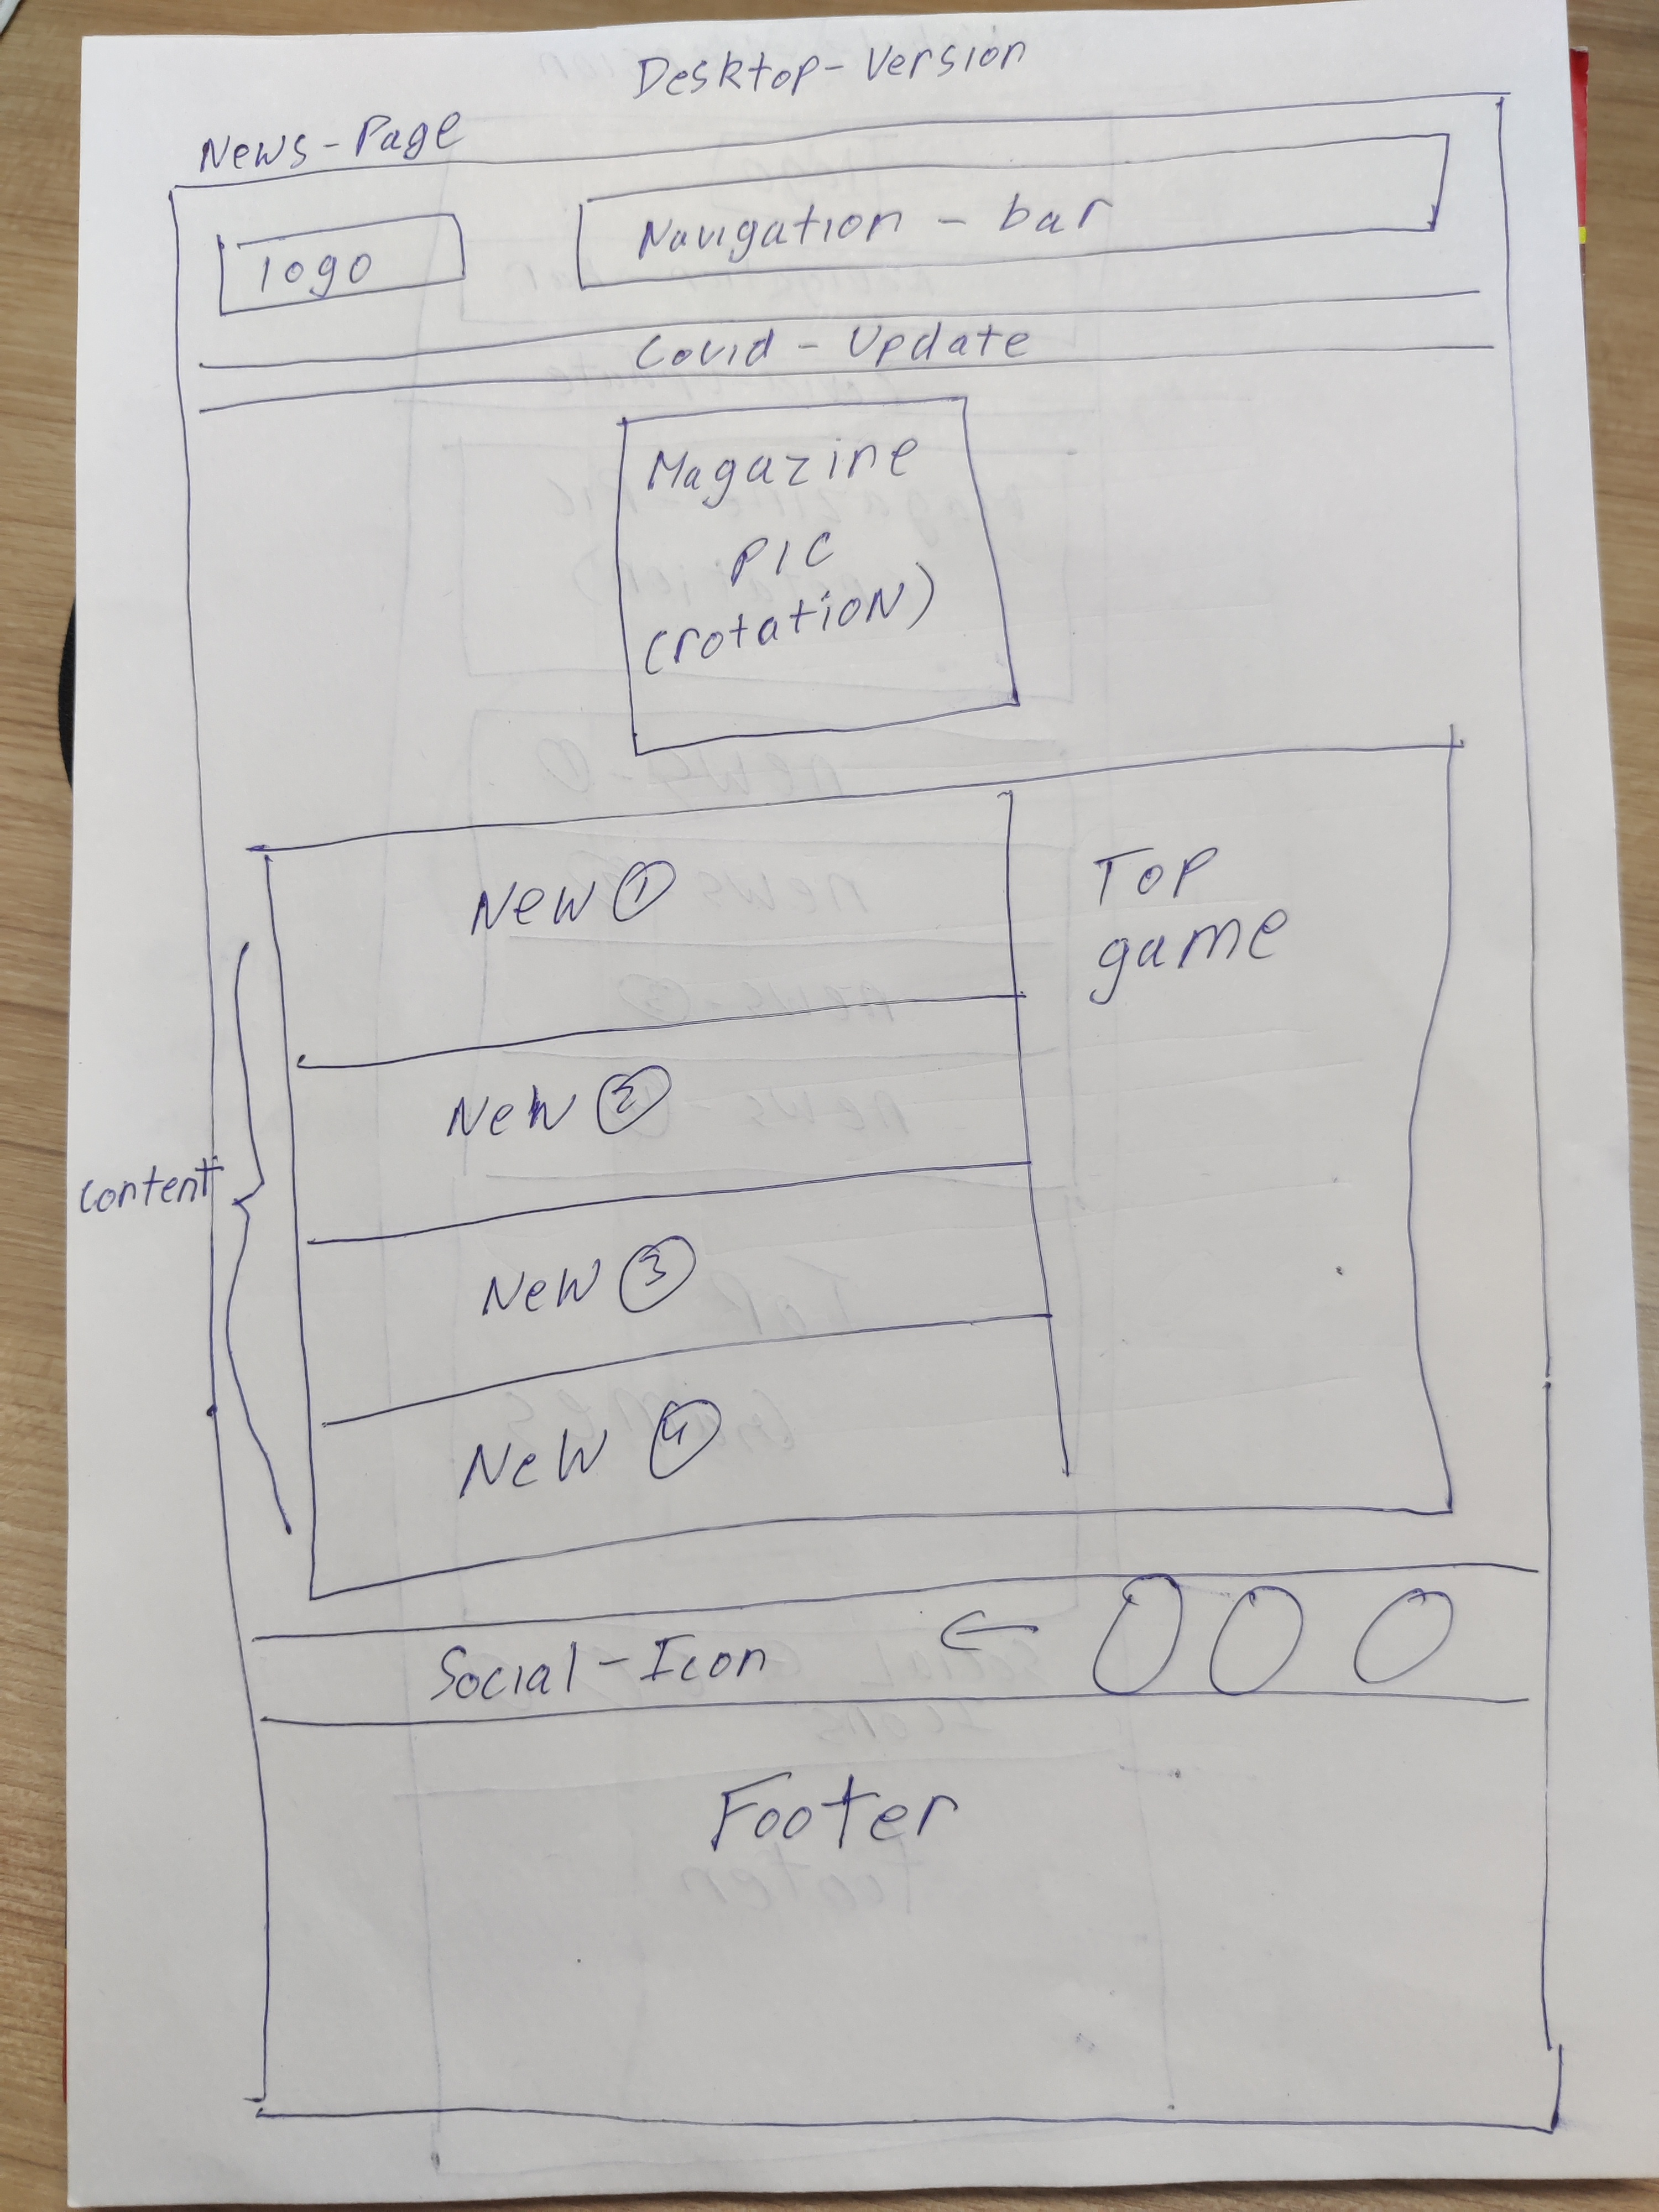 Desktop-Version
News-Page
logo
Navigation - bar
Covid - Update
Magazine
PIC
(rotation)
New ①
Top
game
New ②
content
New ③
New ④
Social-Icon
Footer